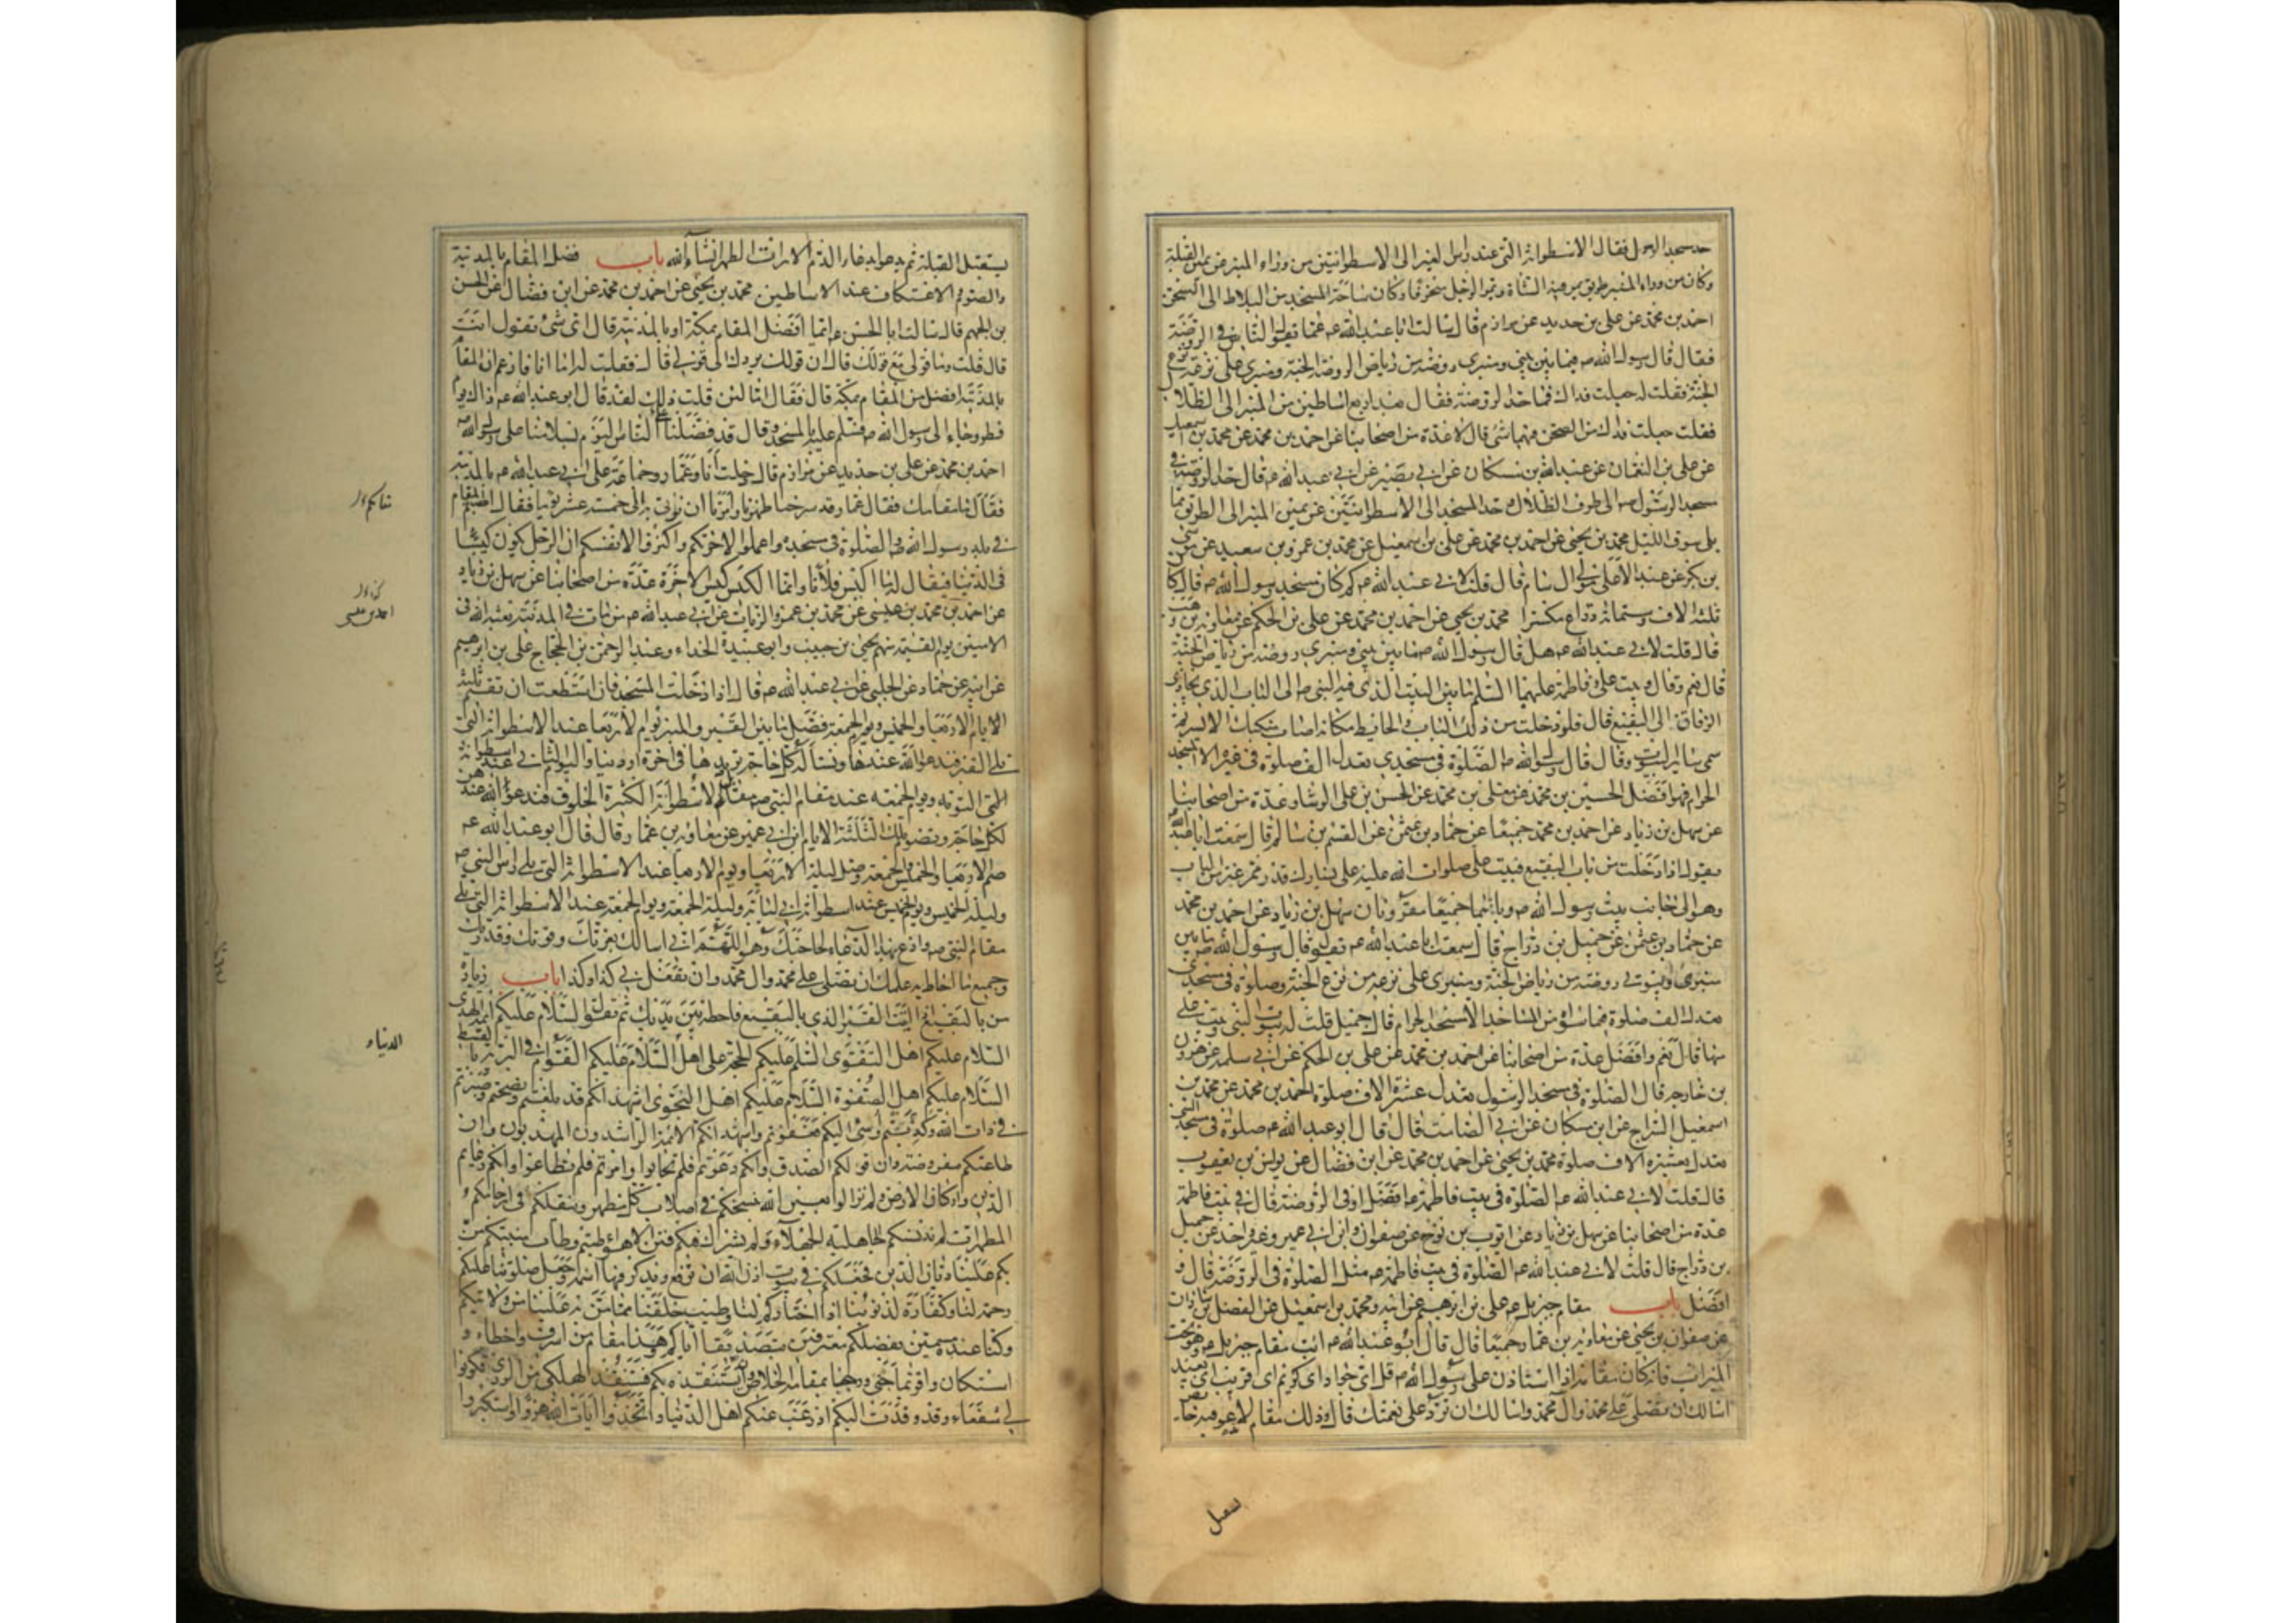 حد مسجد الرسول فقال الاسطوانة التى عند راس القبر الى الاسطوانتين من وراء المنبر عن يمين القبلة
وكان من وراء المنبر طريق تمر فيه الشاة ويمر الرجل منحرفا وكان ساحة المسجد من البلاط الى الصحن
احمد بن محمد عن على بن حديد عن مرازم قال سالت ابا عبد الله عم عما يقول الناس فى الروضة
فقال قال رسول الله ص فيما بين بيتى ومنبرى روضة من رياض الجنة ومنبرى على ترعة من ترع
الجنة فقلت له جعلت فداك فما حد الروضة فقال بعد اربع اساطين من المنبر الى الظلال
فقلت جعلت فداك من الصحن فيها شئ قال لا عدة من اصحابنا عن احمد بن محمد عن محمد بن اسمعيل
عن على بن النعمان عن عبد الله بن مسكان عن ابى بصير عن ابى عبد الله عم قال حد الروضة فى
مسجد الرسول ص الى طرف الظلال وحد المسجد الى الاسطوانتين عن يمين المنبر الى الطريق مما
يلى سوق الليل محمد بن يحيى عن احمد بن محمد عن على بن اسمعيل عن محمد بن عمرو بن سعيد عن موسى
بن بكر عن عبد الاعلى مولى ال سام قال قلت لابى عبد الله عم كم كان مسجد رسول الله ص قال كان
ثلثة الاف وستمائة ذراع مكسرا محمد بن يحيى عن احمد بن محمد عن على بن الحكم عن معاوية بن وهب
قال قلت لابى عبد الله عم هل قال رسول الله ص ما بين بيتى ومنبرى روضة من رياض الجنة
قال نعم وقال وبيت على وفاطمة عليهما السلم ما بين البيت الذى فيه النبى ص الى الباب الذى يحاذى
الزقاق الى البقيع قال فلو دخلت من ذلك الباب والحائط مكانه اصاب منكبك الايسر ثم
سمى سائر البيوت وقال قال رسول الله ص الصلوة فى مسجدى تعدل الف صلوة فى غيره الا المسجد
الحرام فهو افضل الحسين بن محمد عن معلى بن محمد عن الحسن بن على الوشاء وعدة من اصحابنا
عن سهل بن زياد عن احمد بن محمد جميعا عن حماد بن عثمن عن القسم بن سالم قال سمعت ابا عبد الله
يقول اذا دخلت من باب البقيع فبيت على صلوات الله عليه على يسارك قدر ممر عنز من الباب
وهو الى جانب بيت رسول الله ص وباباهما جميعا مقرونان سهل بن زياد عن احمد بن محمد
عن حماد بن عثمن عن جميل بن دراج قال سمعت ابا عبد الله عم يقول قال رسول الله ص ما بين
منبرى وبيوتى روضة من رياض الجنة ومنبرى على ترعة من ترع الجنة وصلوة فى مسجدى
تعدل الف صلوة فيما سواه من المساجد الا المسجد الحرام قال جميل قلت له بيوت النبى وبيت على
منها قال نعم وافضل عدة من اصحابنا عن احمد بن محمد عن على بن الحكم عن ابى سلمة عن هرون
بن خارجة قال الصلوة فى مسجد الرسول تعدل عشرة الاف صلوة احمد بن محمد عن محمد بن
اسمعيل السراج عن ابن مسكان عن ابى الصامت قال قال ابو عبد الله عم صلوة فى مسجد النبى
تعدل بعشرة الاف صلوة محمد بن يحيى عن احمد بن محمد عن ابن فضال عن يونس بن يعقوب
قال قلت لابى عبد الله عم الصلوة فى بيت فاطمة عم افضل او فى الروضة قال فى بيت فاطمة
عدة من اصحابنا عن سهل بن زياد عن ايوب بن نوح عن صفوان وابن ابى عمير وغير واحد عن جميل
بن دراج قال قلت لابى عبد الله عم الصلوة فى بيت فاطمة عم مثل الصلوة فى الروضة قال و
افضل باب مقام جبريل عم على بن ابرهيم عن ابيه ومحمد بن اسمعيل عن الفضل بن شاذان
عن صفوان بن يحيى عن معاوية بن عمار جميعا قال قال ابو عبد الله عم ائت مقام جبريل عم وهو تحت
الميزاب فانه كان مقامه اذا استاذن على رسول الله ص قل اى جواد اى كريم اى قريب اى بعيد
اسالك ان تصلى على محمد وال محمد واسالك ان ترد على نعمتك قال وذلك مقام لا تدعو فيه حائض
تستقبل القبلة ثم تدعو بدعاء الدم الا رات الطهر انشاء الله باب فضل المقام بالمدينة
والصوم والاعتكاف عند الاساطين محمد بن يحيى عن احمد بن محمد عن ابن فضال عن الحسن
بن الجهم قال سالت ابا الحسن عم ايما افضل المقام بمكة او بالمدينة قال اى شئ تقول انت
قال قلت وما قولى مع قولك قال ان قولك يردك الى قولى قال فقلت له اما انا فازعم ان المقام
بالمدينة افضل من المقام بمكة قال فقال اما لئن قلت ذلك لقد قال ابو عبد الله عم ذاك يوم
فطر وجاء الى رسول الله ص فسلم عليه بالمسجد وقال قد فضلنا الناس اليوم بسلامنا على رسول الله ص
احمد بن محمد عن على بن حديد عن مرازم قال دخلت انا وعمار وجماعة على ابى عبد الله عم بالمدينة
فقال ما مقامك فقال عمار قد سرحنا ظهرنا وامرنا ان نؤتى به الى خمسة عشر يوما فقال اصبتم المقام
فى بلد رسول الله ص والصلوة فى مسجده واعملوا لاخرتكم واكثروا لانفسكم ان الرجل يكون كيسا
فى الدنيا فيقال له ما اكيس فلانا وانما الكيس كيس الاخرة عدة من اصحابنا عن سهل بن زياد
عن احمد بن محمد بن عيسى عن محمد بن عمرو الزيات عن ابى عبد الله عم من مات فى المدينة بعثه الله فى
الامنين يوم القيمة منهم يحيى بن حبيب وابو عبيدة الحذاء وعبد الرحمن بن الحجاج على بن ابرهيم
عن ابيه عن حماد عن الحلبى عن ابى عبد الله عم قال اذا دخلت المسجد فان استطعت ان تقيم ثلثة
الايام الاربعاء والخميس ويوم الجمعة فصل ما بين القبر والمنبر يوم الاربعاء عند الاسطوانة التى
تلى القبر فتدعو الله عندها وتساله كل حاجة تريدها فى اخرة او دنيا واليوم الثانى عند اسطوانة
التوبة ويوم الجمعة عند مقام النبى ص مقابل الاسطوانة الكثيرة الخلوق فتدعو الله عندهن
لكل حاجة وتصوم تلك الثلثة الايام ابن ابى عمير عن معاوية بن عمار وقال قال ابو عبد الله عم
صم الاربعاء والخميس والجمعة وصل ليلة الاربعاء ويوم الاربعاء عند الاسطوانة التى تلى راس النبى ص
وليلة الخميس ويوم الخميس عند اسطوانة ابى لبابة وليلة الجمعة ويوم الجمعة عند الاسطوانة التى تلى
مقام النبى ص وادع بهذا الدعاء لحاجتك وهو اللهم انى اسالك بعزتك وقوتك وقدرتك
وجميع ما احاط به علمك ان تصلى على محمد وال محمد وان تفعل بى كذا وكذا باب زيارة
من بالبقيع اذا اتيت القبر الذى بالبقيع فاجعله بين يديك ثم تقول السلام عليكم ائمة الهدى
السلام عليكم اهل التقوى السلم عليكم الحجة على اهل الدنيا السلام عليكم القوام فى البرية بالقسط
السلام عليكم اهل الصفوة السلام عليكم اهل النجوى اشهد انكم قد بلغتم ونصحتم وصبرتم
فى ذات الله وكذبتم واسئ اليكم فغفرتم واشهد انكم الائمة الراشدون المهديون وان
طاعتكم مفروضة وان قولكم الصدق وانكم دعوتم فلم تجابوا وامرتم فلم تطاعوا وانكم دعائم
الدين واركان الارض ولم تزالوا بعين الله ينسخكم فى اصلاب كل مطهر وينقلكم فى ارحام
المطهرات لم تدنسكم الجاهلية الجهلاء ولم تشرك فيكم فتن الاهواء طبتم وطاب منبتكم من
بكم علينا ديان الدين فجعلكم فى بيوت اذن الله ان ترفع ويذكر فيها اسمه وجعل صلوتنا عليكم
رحمة لنا وكفارة لذنوبنا اذ اختاركم لنا وطيب خلقنا بما من به علينا من ولايتكم
وكنا عنده مسمين بفضلكم معترفين بتصديقنا اياكم وهذا مقام من اسرف واخطاء و
استكان واقر بما جنى ورجا بمقامه الخلاص وان يستنقذه بكم مستنقذ الهلكى من الردى فكونوا
لى شفعاء وقد وفدت اليكم اذ رغب عنكم اهل الدنيا واتخذوا ايات الله هزوا واستكبروا
احمد بن عيسى
الدنيا